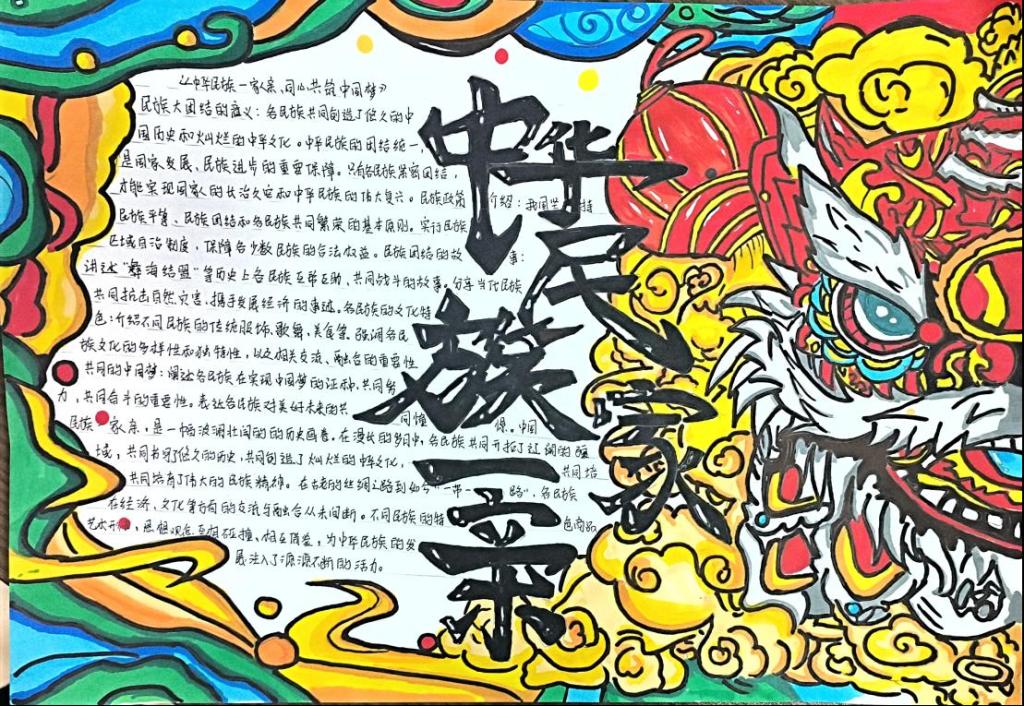 中华民族一家亲
《中华民族一家亲，同心共筑中国梦》
民族大团结的意义：各民族共同创造了悠久的中
国历史和灿烂的中华文化。中华民族的团结统一，
是国家发展、民族进步的重要保障。只有各民族紧密团结，
才能实现国家的长治久安和中华民族的伟大复兴。民族政策 介绍：我国坚 持
民族平等、民族团结和各民族共同繁荣的基本原则。实行民族
区域自治制度，保障各少数民族的合法权益。民族团结的故 事：
讲述“彝海结盟”等历史上各民族互帮互助、共同战斗的故事。分享当代民族
共同抗击自然灾害、携手发展经济的事迹。各民族的文化特
色：介绍不同民族的传统服饰、歌舞、美食等。强调各民
族文化的多样性和独特性，以及相关交流、融合的重要性
共同的中国梦：阐述各民族在实现中国梦的征程中，共同努
力，共同奋斗的重要性。表达各民族对美好未来的共
同憧 憬。中国
民族 家亲，是一幅波澜壮阔的的历史画卷。在漫长的岁月中，各民族共同开拓了辽阔的疆
域，共同书写了悠久的历史，共同创造了灿烂的中华文化， 共同培
共同培育了伟大的民族精神。在古老的丝绸之路到如今“一带一 路”，各民族
在经济、文化等方面的交流与融合从未间断。不同民族的特 色商品
艺术 ，思想观念互相碰撞，相互借鉴，为中华民族的发
展注入了源源不断的活力。